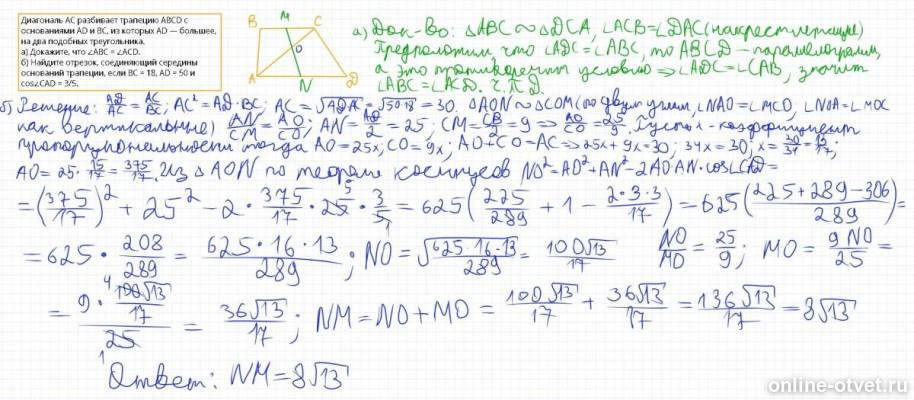 Диагональ АС разбивает трапецию ABCD с
основаниями AD и BC, из которых AD — большее,
на два подобных треугольника.
а) Докажите, что ∠ABC = ∠ACD.
б) Найдите отрезок, соединяющий середины
оснований трапеции, если BC = 18, AD = 50 и
cos∠CAD = 3/5.
B M C
O
A N D
а) Док-во: △ABC ~ △DCA, ∠ACB=∠DAC (накрестлежащие)
Предположим что ∠ADC=∠ABC, то ABCD – параллелограмм,
а это противоречит условию ⇒ ∠ADC=∠CAB, значит
∠ABC=∠ACD. ч.т.д.
б) Решение: AD/AC = AC/BC; AC²=AD·BC; = √50·18 = 30. △AON ~ △COM (по двум углам, ∠NAO=∠MCO, ∠NOA=∠MOC
как вертикальные) AN/CM = AO/CO; AN = AD/2 = 25; CM = CB/2 = 9 ⇒ AO/CO = 25/9. Пусть x - коэффициент
пропорциональности тогда AO=25x, CO=9x; AO+CO=AC ⇒ 25x+9x=30; 34x=30; x = 30/34 = 15/17;
AO = 25· 15/17 = 375/17. Из △AON по теореме косинусов NO²=AO²+AN²-2AO·AN·cos∠CAD=
= (375/17)² + 25² - 2· 375/17 · 25 · 3/5 = 625(225/289 + 1 - 2·3·3/17) = 625(225+289-306/289) =
= 625 · 208/289 = 625·16·13/289; NO = √625·16·13/289 = 100√13/17 NO/MO = 25/9; MO = 9NO/25 =
= 9·100√13/17/25 = 36√13/17; NM=NO+MO = 100√13/17 + 36√13/17 = 136√13/17 = 8√13
Ответ: NM=8√13
online-otvet.ru